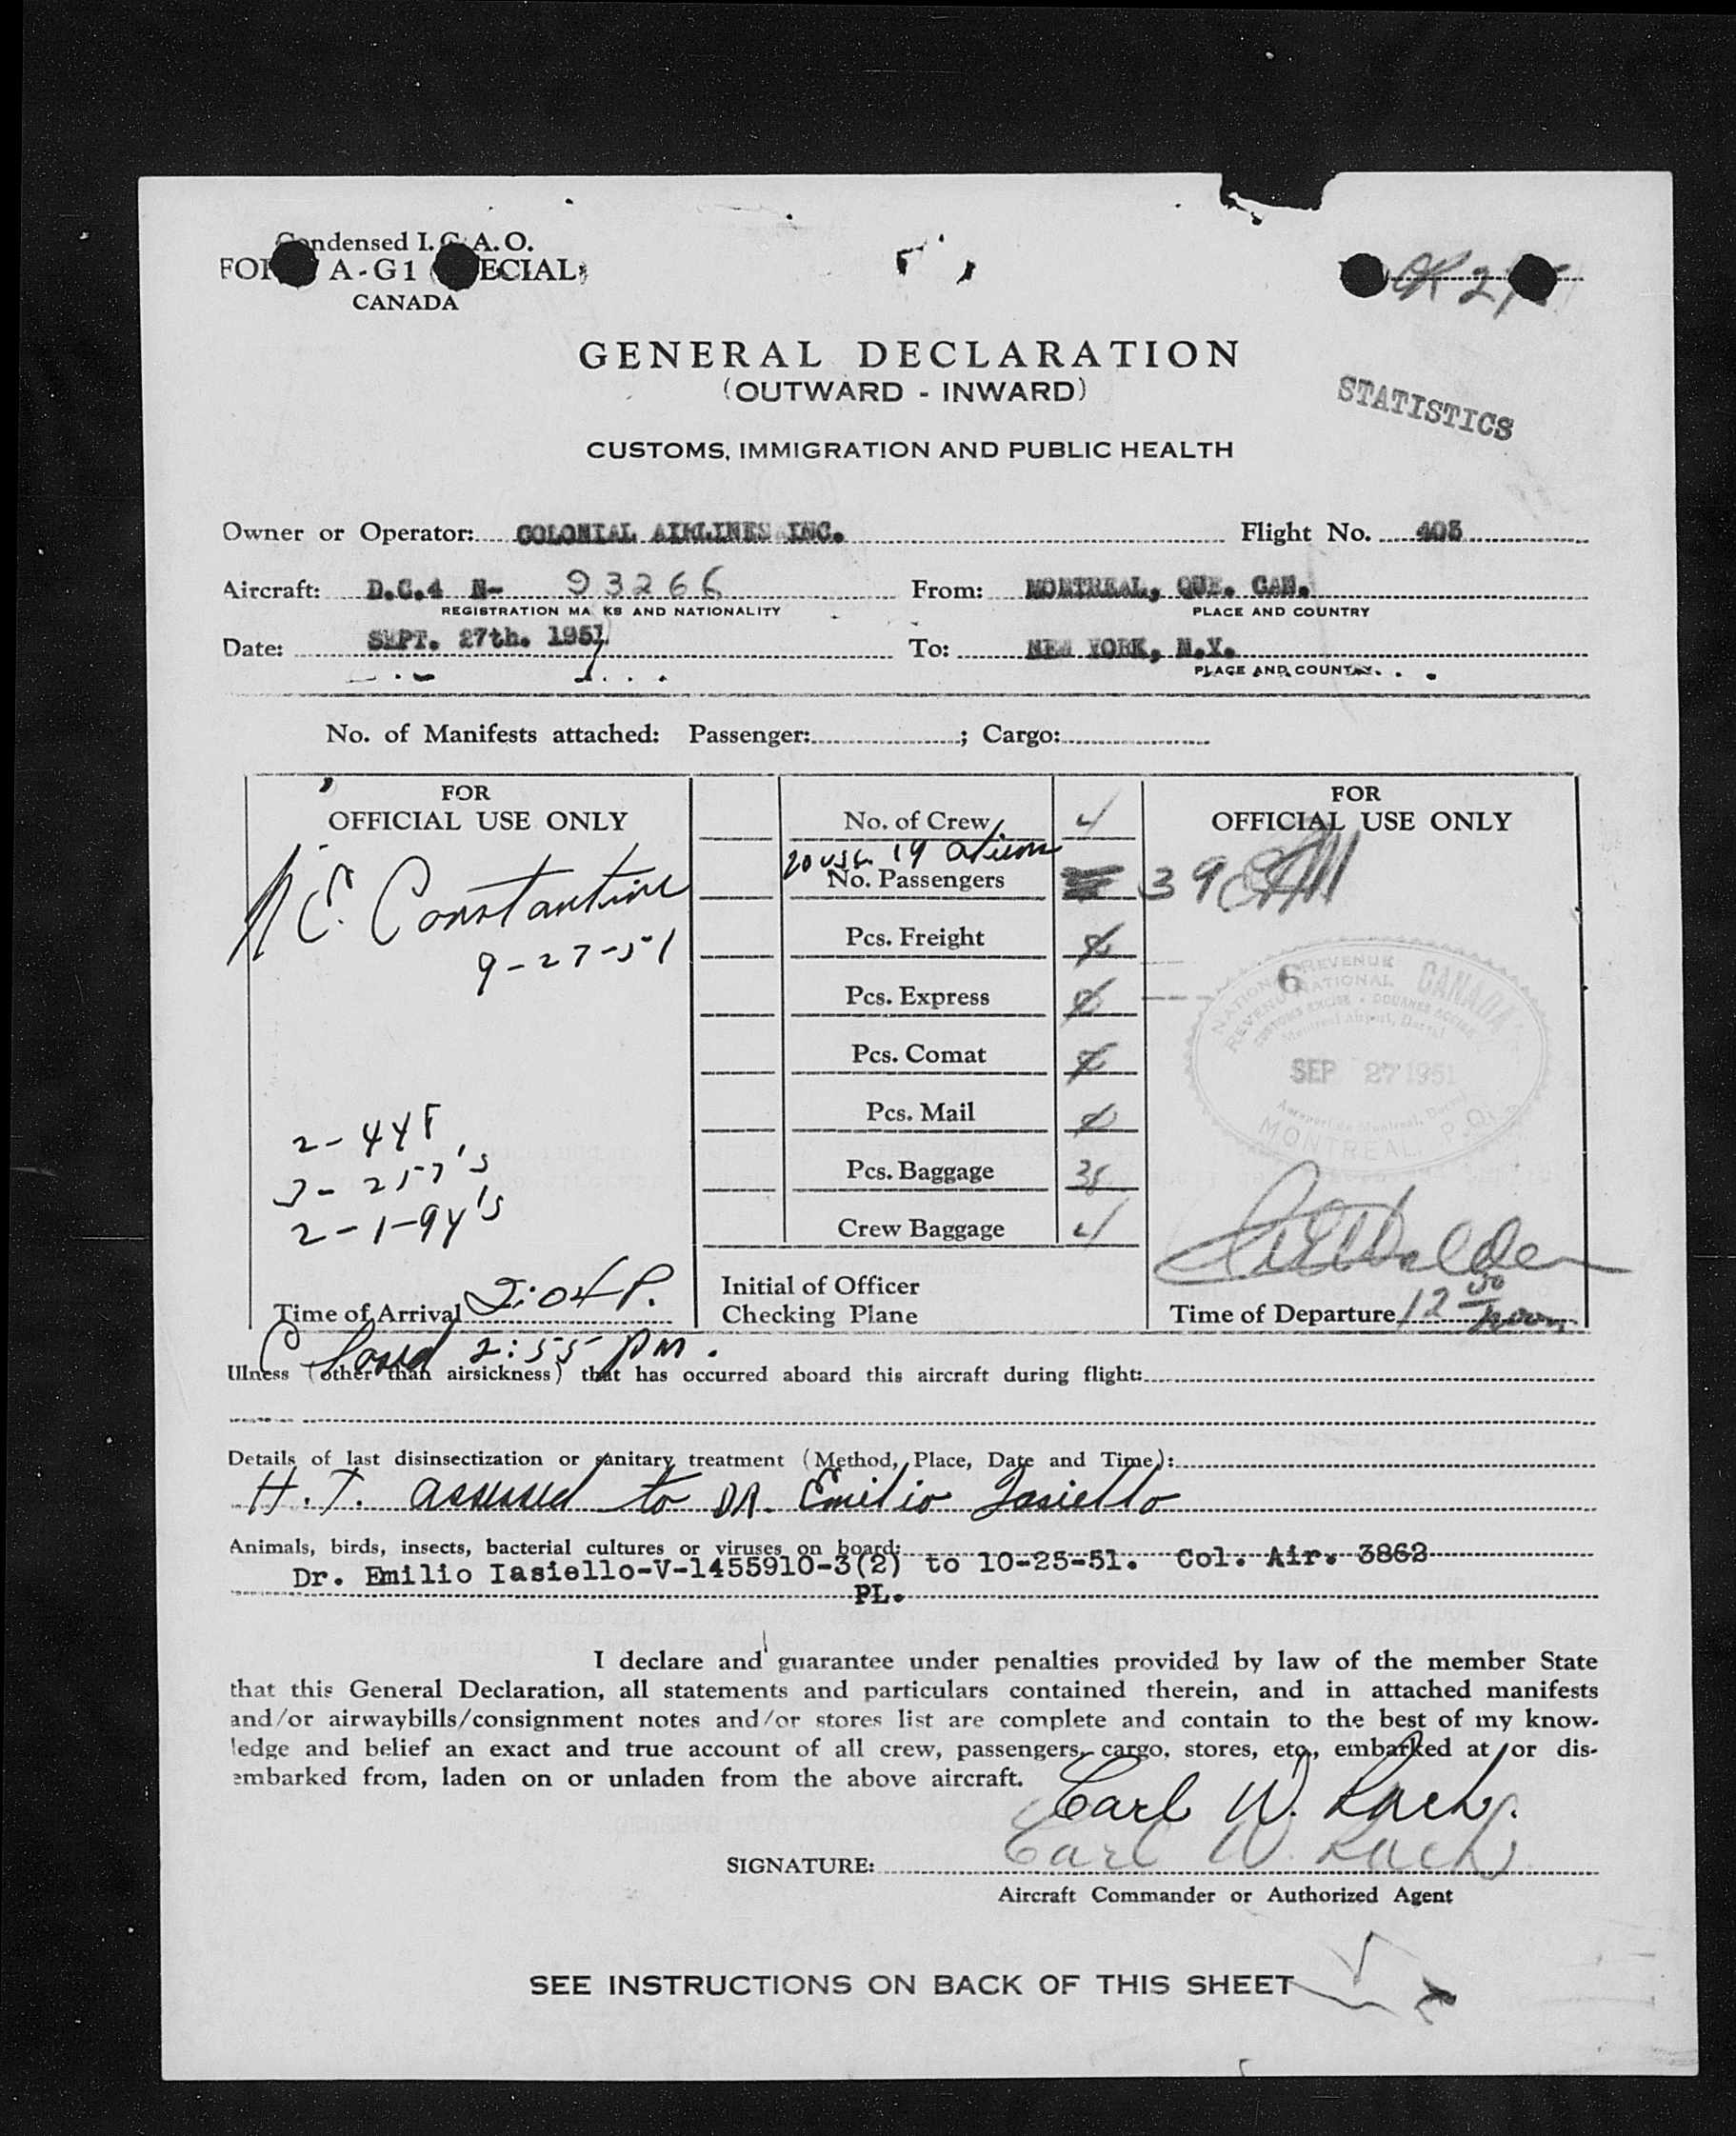 Condensed I.C.A.O.
FORM A-G1 (SPECIAL)
CANADA
OK
GENERAL DECLARATION
(OUTWARD - INWARD)
STATISTICS
CUSTOMS, IMMIGRATION AND PUBLIC HEALTH
Owner or Operator: COLONIAL AIRLINES INC. Flight No. 403
Aircraft: D.C.4 N- 93266 From: MONTREAL, QUE. CAN.
REGISTRATION MA KS AND NATIONALITY PLACE AND COUNTRY
Date: SEPT. 27th. 1951 To: NEW YORK, N.Y.
PLACE AND COUNTRY
No. of Manifests attached: Passenger: ; Cargo:
FOR
OFFICIAL USE ONLY
Constantine
9-27-51
2-
3- 257's
2-1-94's
Time of Arrival 2:04 P.
No. of Crew 4
20 USC 19 Aliens
No. Passengers 39
Pcs. Freight
Pcs. Express
Pcs. Comat
Pcs. Mail
Pcs. Baggage 38
Crew Baggage 4
Initial of Officer
Checking Plane
FOR
OFFICIAL USE ONLY
6
NATIONAL REVENUE CANADA
REVENU NATIONAL
CUSTOMS EXCISE · DOUANES ACCISE
Montreal Airport, Dorval
SEP 27 1951
Aeroport de Montreal, Dorval
MONTREAL, P.QUE.
Time of Departure 12 50 noon
Closed 2:55 PM.
Illness (other than airsickness) that has occurred aboard this aircraft during flight:
Details of last disinsectization or sanitary treatment (Method, Place, Date and Time):
H.T. assessed to DR. Emilio Iasiello
Animals, birds, insects, bacterial cultures or viruses on board:
Dr. Emilio Iasiello-V-1455910-3(2) to 10-25-51. Col. Air. 3862
PL.
I declare and guarantee under penalties provided by law of the member State
that this General Declaration, all statements and particulars contained therein, and in attached manifests
and/or airwaybills/consignment notes and/or stores list are complete and contain to the best of my know-
ledge and belief an exact and true account of all crew, passengers, cargo, stores, etc., embarked at or dis-
embarked from, laden on or unladen from the above aircraft.
Carl W.
SIGNATURE: Carl W.
Aircraft Commander or Authorized Agent
SEE INSTRUCTIONS ON BACK OF THIS SHEET